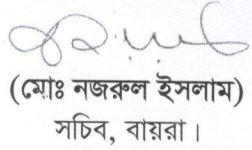 (মোঃ নজরুল ইসলাম)
সচিব, বায়রা।